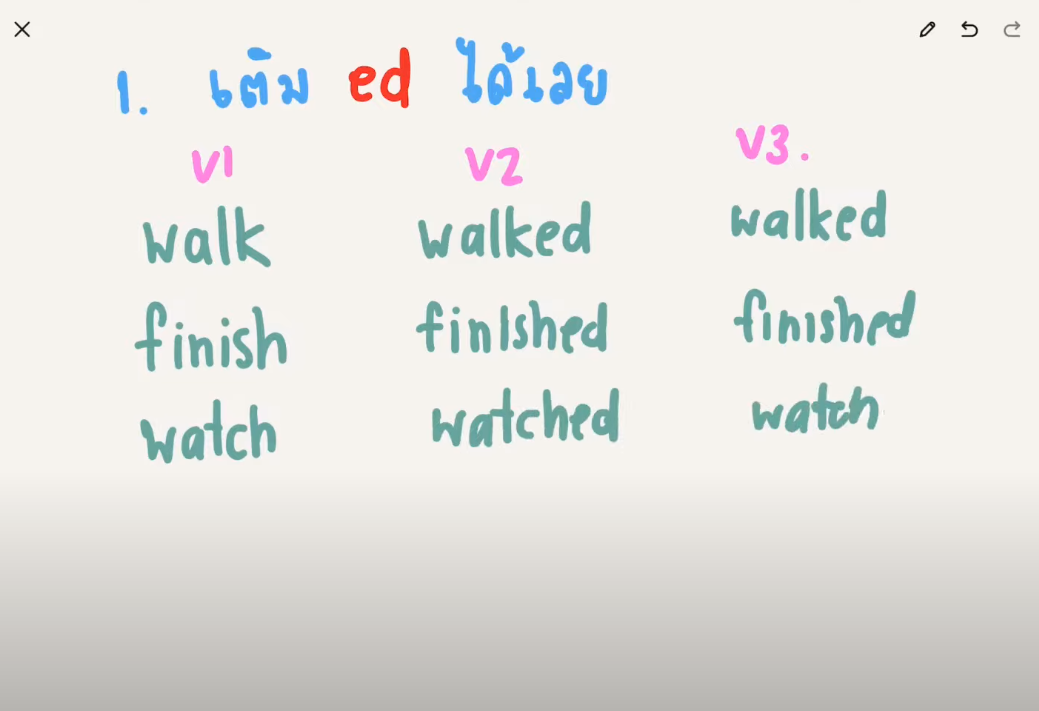 1. เติม ed ได้เลย
V1 V2 V3.
walk walked walked
finish finished finished
watch watched watch